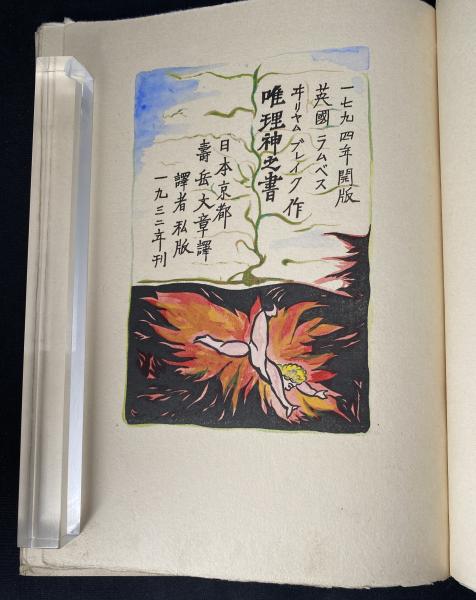 一七九四年開版
英國ラムベス
ヰリヤムブレイク作
唯理神之書
日本京都
壽岳文章譯
譯者私版
一九三二年刊